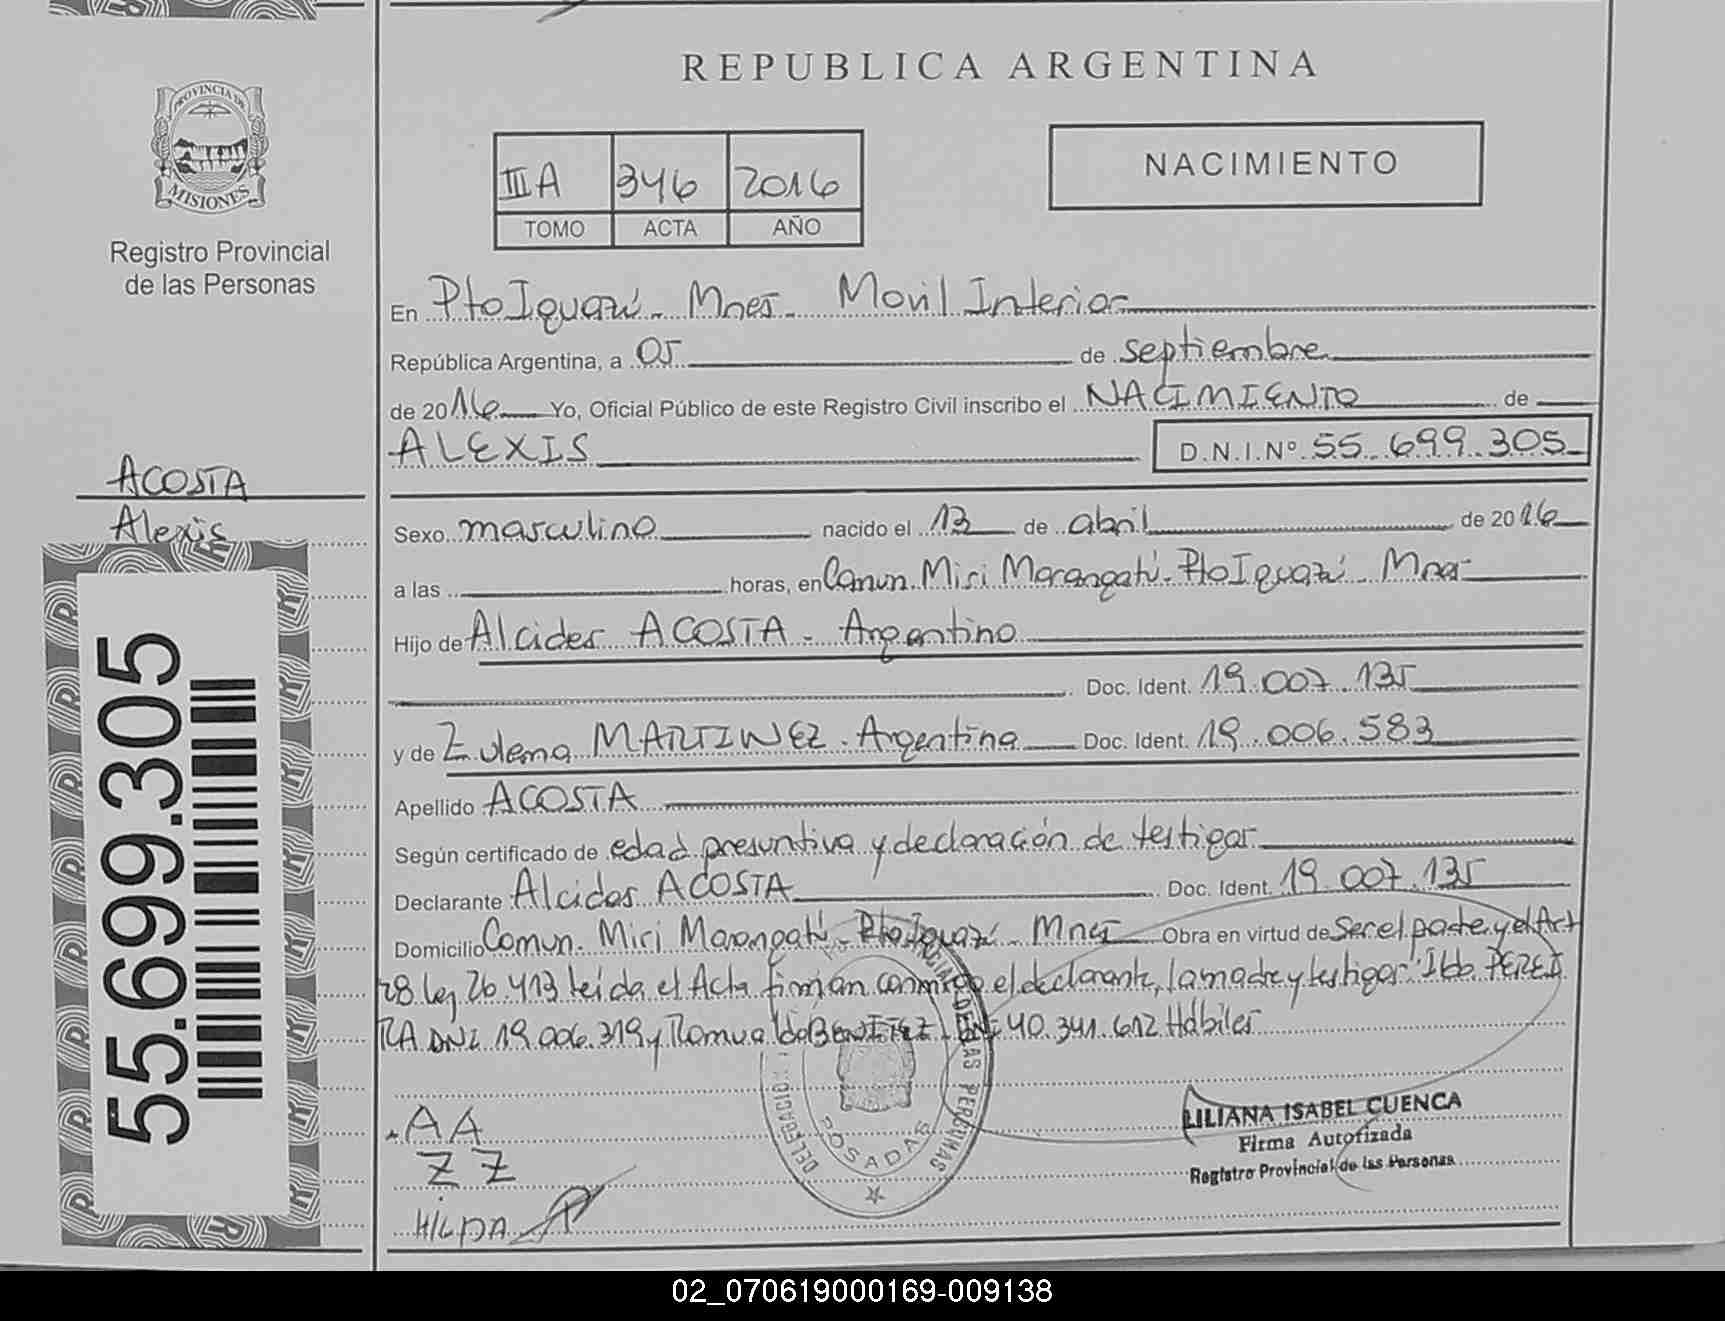 REPUBLICA ARGENTINA
PROVINCIA DE
MISIONES
Registro Provincial
de las Personas
NACIMIENTO
III A 346 2016
TOMO ACTA AÑO
En Pto Iguazú - Mnes - Movil Interior
República Argentina, a 05 de septiembre
de 2016 Yo, Oficial Público de este Registro Civil inscribo el NACIMIENTO de
ALEXIS D.N.I.Nº 55.699.305
ACOSTA
Alexis
Sexo masculino nacido el 13 de abril de 2016
a las horas, en Comun. Miri Marangatú - Pto Iguazú - Mnes
Hijo de Alcides ACOSTA - Argentino
Doc. Ident. 19.007.135
y de Zulema MARTINEZ - Argentina Doc. Ident. 19.006.583
Apellido ACOSTA
Según certificado de edad presuntiva y declaración de testigos
Declarante Alcides ACOSTA Doc. Ident. 19.007.135
Domicilio Comun. Miri Marangatú - Pto Iguazú - Mnes Obra en virtud de Ser el padre y el Art
28 Ley 26.413 leída el Acta firman conmigo el declarante, la madre y testigos
RA DNI 19.006.319 y Romualdo BENITEZ - DNI 40.341.612 Hábiles
55.699.305
AA
ZZ
HILDA
DELEGACION
DE LAS PERSONAS
POSADAS
LILIANA ISABEL CUENCA
Firma Autorizada
Registro Provincial de las Personas
02_070619000169-009138